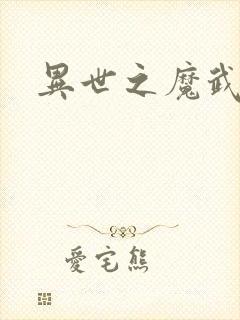 異世之魔武
愛宅熊